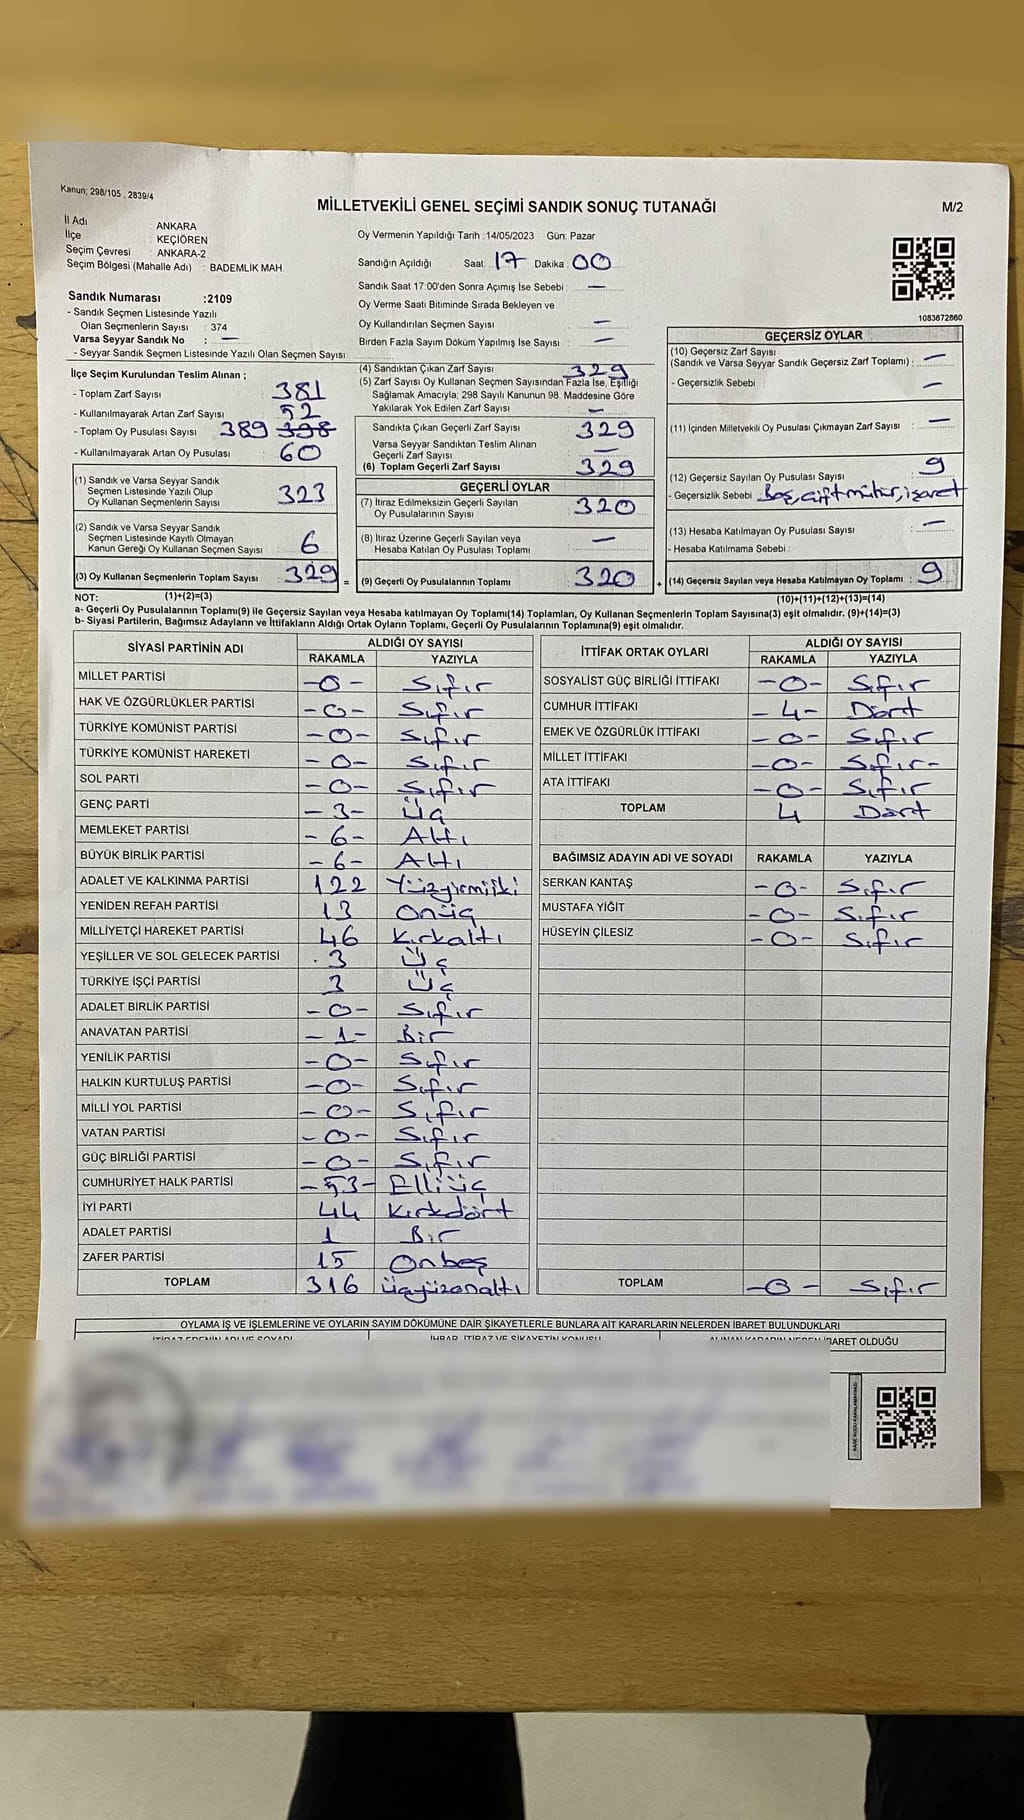 Kanun; 298/105 , 2839/4
MİLLETVEKİLİ GENEL SEÇİMİ SANDIK SONUÇ TUTANAĞI
M/2
İl Adı ANKARA
İlçe KEÇİÖREN
Seçim Çevresi : ANKARA-2
Seçim Bölgesi (Mahalle Adı) : BADEMLİK MAH.
Oy Vermenin Yapıldığı Tarih :14/05/2023 Gün: Pazar
Sandığın Açıldığı Saat: 17 Dakika: 00
Sandık Saat 17:00'den Sonra Açımış İse Sebebi : —
Oy Verme Saati Bitiminde Sırada Bekleyen ve
Oy Kullandırılan Seçmen Sayısı : —
Birden Fazla Sayım Döküm Yapılmış İse Sayısı : —
1083672860
Sandık Numarası :2109
- Sandık Seçmen Listesinde Yazılı
Olan Seçmenlerin Sayısı : 374
Varsa Seyyar Sandık No : —
- Seyyar Sandık Seçmen Listesinde Yazılı Olan Seçmen Sayısı:
İlçe Seçim Kurulundan Teslim Alınan ;
- Toplam Zarf Sayısı : 381
- Kullanılmayarak Artan Zarf Sayısı : 52
- Toplam Oy Pusulası Sayısı 389 398
- Kullanılmayarak Artan Oy Pusulası : 60
(1) Sandık ve Varsa Seyyar Sandık
Seçmen Listesinde Yazılı Olup
Oy Kullanan Seçmenlerin Sayısı : 323
(2) Sandık ve Varsa Seyyar Sandık
Seçmen Listesinde Kayıtlı Olmayan
Kanun Gereği Oy Kullanan Seçmen Sayısı : 6
(3) Oy Kullanan Seçmenlerin Toplam Sayısı : 329 =
(1)+(2)=(3)
(4) Sandıktan Çıkan Zarf Sayısı : 329
(5) Zarf Sayısı Oy Kullanan Seçmen Sayısından Fazla İse, Eşitliği
Sağlamak Amacıyla; 298 Sayılı Kanunun 98. Maddesine Göre
Yakılarak Yok Edilen Zarf Sayısı : —
Sandıkta Çıkan Geçerli Zarf Sayısı : 329
Varsa Seyyar Sandıktan Teslim Alınan
Geçerli Zarf Sayısı : —
(6) Toplam Geçerli Zarf Sayısı : 329
GEÇERLİ OYLAR
(7) İtiraz Edilmeksizin Geçerli Sayılan
Oy Pusulalarının Sayısı : 320
(8) İtiraz Üzerine Geçerli Sayılan veya
Hesaba Katılan Oy Pusulası Toplamı : —
(9) Geçerli Oy Pusulalarının Toplamı : 320 +
GEÇERSİZ OYLAR
(10) Geçersiz Zarf Sayısı
(Sandık ve Varsa Seyyar Sandık Geçersiz Zarf Toplamı) : —
- Geçersizlik Sebebi : —
(11) İçinden Milletvekili Oy Pusulası Çıkmayan Zarf Sayısı : —
(12) Geçersiz Sayılan Oy Pusulası Sayısı : 9
- Geçersizlik Sebebi : Boş, çift mühür, işaret
(13) Hesaba Katılmayan Oy Pusulası Sayısı : —
- Hesaba Katılmama Sebebi :
(14) Geçersiz Sayılan veya Hesaba Katılmayan Oy Toplamı : 9
(10)+(11)+(12)+(13)=(14)
NOT:
a- Geçerli Oy Pusulalarının Toplamı(9) ile Geçersiz Sayılan veya Hesaba katılmayan Oy Toplamı(14) Toplamları, Oy Kullanan Seçmenlerin Toplam Sayısına(3) eşit olmalıdır. (9)+(14)=(3)
b- Siyasi Partilerin, Bağımsız Adayların ve İttifakların Aldığı Ortak Oyların Toplamı, Geçerli Oy Pusulalarının Toplamına(9) eşit olmalıdır.
SİYASİ PARTİNİN ADI ALDIĞI OY SAYISI
RAKAMLA YAZIYLA
MİLLET PARTİSİ -0- Sıfır
HAK VE ÖZGÜRLÜKLER PARTİSİ -0- Sıfır
TÜRKİYE KOMÜNİST PARTİSİ -0- Sıfır
TÜRKİYE KOMÜNİST HAREKETİ -0- Sıfır
SOL PARTİ -0- Sıfır
GENÇ PARTİ -3- Üç
MEMLEKET PARTİSİ -6- Altı
BÜYÜK BİRLİK PARTİSİ -6- Altı
ADALET VE KALKINMA PARTİSİ 122 Yüzyirmiiki
YENİDEN REFAH PARTİSİ 13 Onüç
MİLLİYETÇİ HAREKET PARTİSİ 46 Kırkaltı
YEŞİLLER VE SOL GELECEK PARTİSİ 3 Üç
TÜRKİYE İŞÇİ PARTİSİ 3 Üç
ADALET BİRLİK PARTİSİ -0- Sıfır
ANAVATAN PARTİSİ -1- Bir
YENİLİK PARTİSİ -0- Sıfır
HALKIN KURTULUŞ PARTİSİ -0- Sıfır
MİLLİ YOL PARTİSİ -0- Sıfır
VATAN PARTİSİ -0- Sıfır
GÜÇ BİRLİĞİ PARTİSİ -0- Sıfır
CUMHURİYET HALK PARTİSİ -53- Elliüç
İYİ PARTİ 44 Kırkdört
ADALET PARTİSİ 1 Bir
ZAFER PARTİSİ 15 Onbeş
TOPLAM 316 üçyüzonaltı
İTTİFAK ORTAK OYLARI ALDIĞI OY SAYISI
RAKAMLA YAZIYLA
SOSYALİST GÜÇ BİRLİĞİ İTTİFAKI -0- Sıfır
CUMHUR İTTİFAKI -4- Dört
EMEK VE ÖZGÜRLÜK İTTİFAKI -0- Sıfır
MİLLET İTTİFAKI -0- Sıfır-
ATA İTTİFAKI -0- Sıfır
TOPLAM 4 Dört
BAĞIMSIZ ADAYIN ADI VE SOYADI RAKAMLA YAZIYLA
SERKAN KANTAŞ -0- Sıfır
MUSTAFA YİĞİT -0- Sıfır
HÜSEYİN ÇİLESİZ -0- Sıfır
TOPLAM -0- Sıfır
OYLAMA İŞ VE İŞLEMLERİNE VE OYLARIN SAYIM DÖKÜMÜNE DAİR ŞİKAYETLERLE BUNLARA AİT KARARLARIN NELERDEN İBARET BULUNDUKLARI
İTİRAZ EDENİN ADI VE SOYADI İHBAR, İTİRAZ VE ŞİKAYETİN KONUSU ALINAN KARARIN NEDEN İBARET OLDUĞU